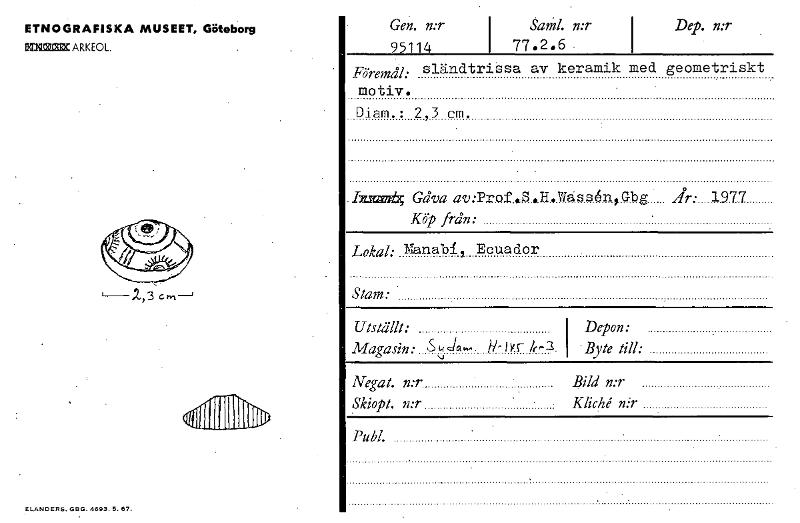 ETNOGRAFISKA MUSEET, Göteborg
ARKEOL.
2,3 cm
ELANDERS, GBG. 4693. 5. 67.
Gen. n:r Saml. n:r Dep. n:r
95114 77.2.6
Föremål: sländtrissa av keramik med geometriskt
motiv.
Diam.: 2,3 cm.
Gåva av: Prof.S.H.Wassén,Gbg År: 1977
Köp från:
Lokal: Manabí, Ecuador
Stam:
Utställt: Depon:
Magasin: Sydam Byte till:
Negat. n:r Bild n:r
Skiopt. n:r Kliché n:r
Publ.